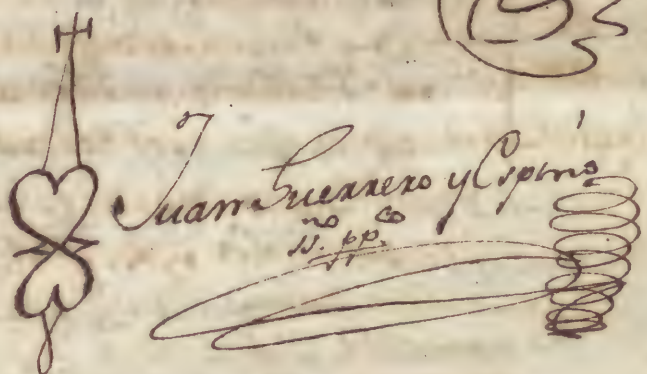 Juan Guerrero y Espinª
no co
ss. pp.